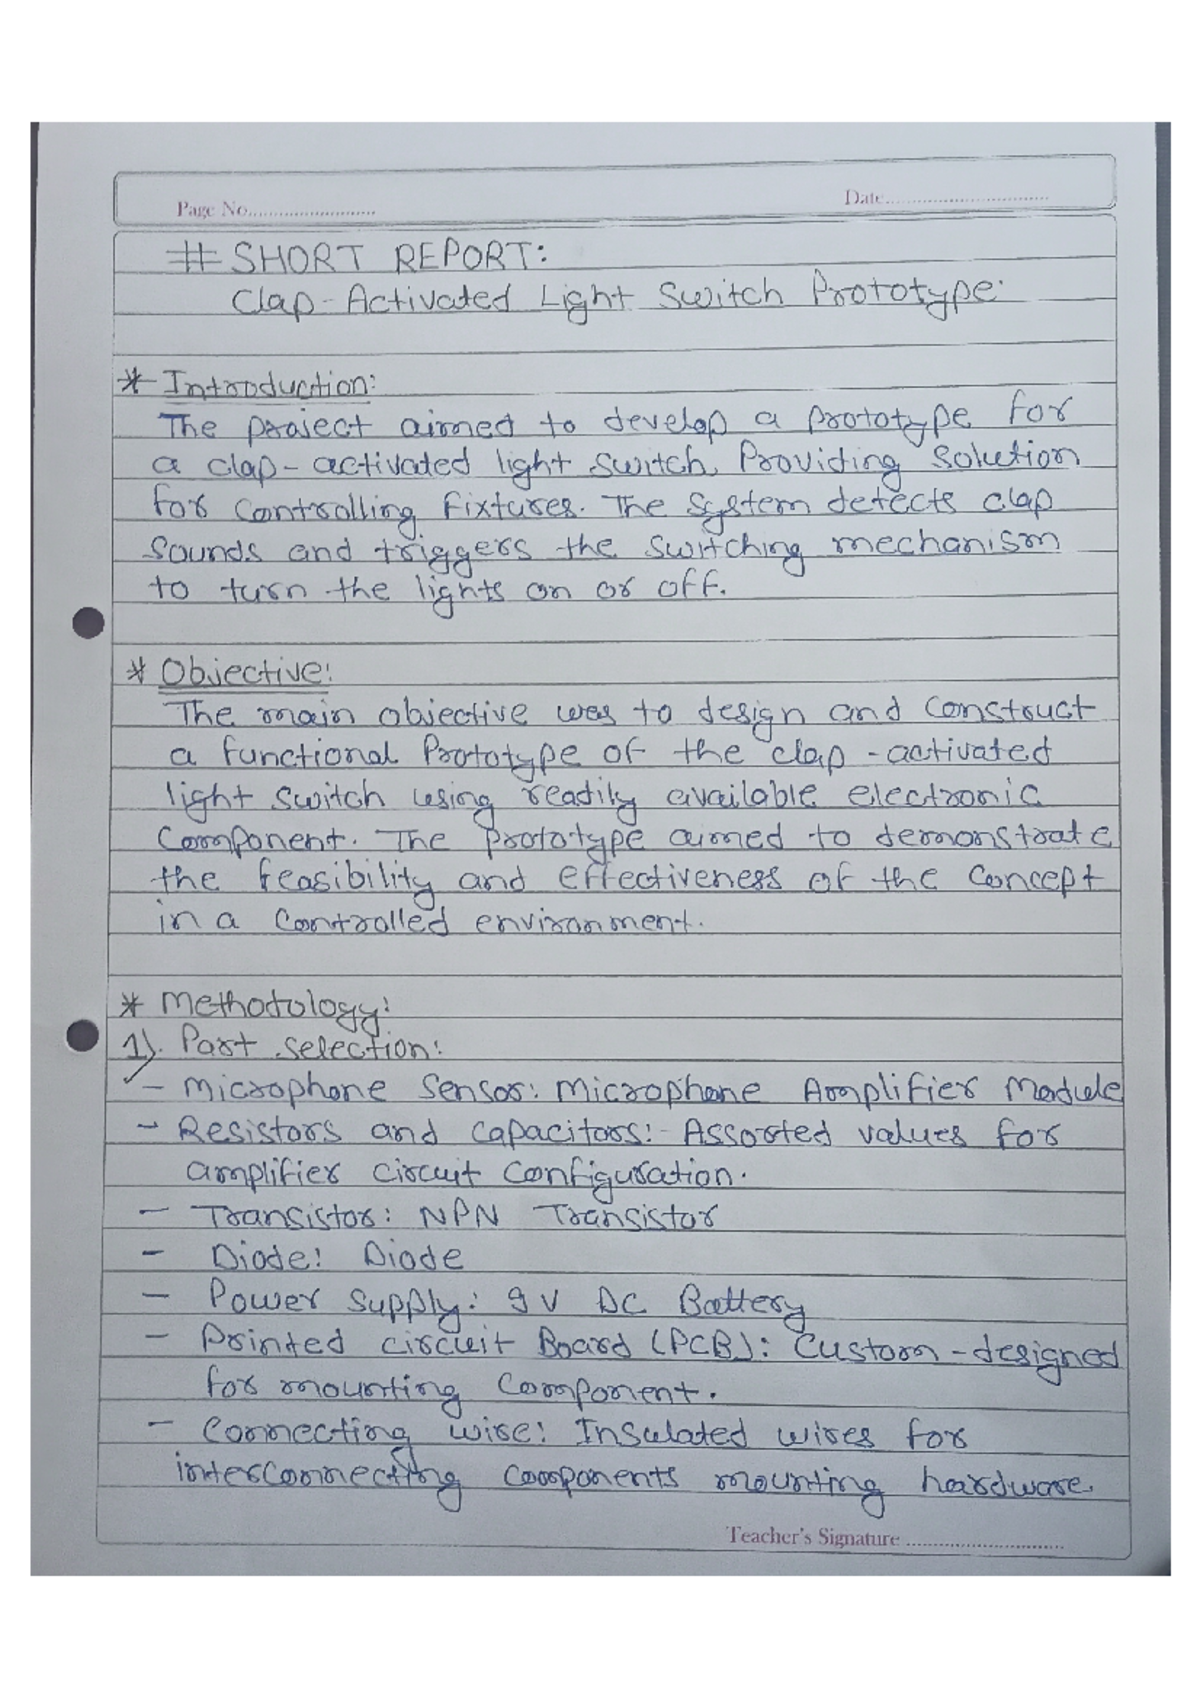 Page No.........................
Date..............................
# SHORT REPORT:
Clap-Activated Light Switch Prototype.
* Introduction:
The project aimed to develop a prototype for
a clap-activated light switch, Providing solution
for controlling fixtures. The system detects clap
sounds and triggers the switching mechanism
to turn the lights on or off.
* Objective:
The main objective was to design and construct
a functional Prototype of the clap-activated
light switch using readily available electronic
Component. The prototype aimed to demonstrate
the feasibility and effectiveness of the concept
in a controlled environment.
* Methodology:
1). Part selection:
- Microphone Sensor: Microphone Amplifier Module
- Resistors and capacitors:- Assorted values for
amplifier circuit configuration.
- Transistor: NPN Transistor
- Diode: Diode
- Power Supply: 9V DC Battery
- Printed circuit Board (PCB): Custom-designed
for mounting component.
- Connecting wire: Insulated wires for
interconnecting components mounting hardware.
Teacher's Signature ..............................